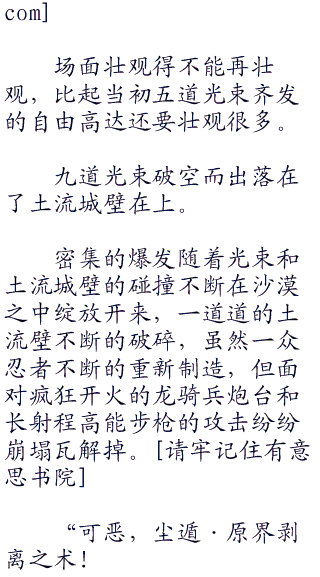 com]
场面壮观得不能再壮
观，比起当初五道光束齐发
的自由高达还要壮观很多。
九道光束破空而出落在
了土流城壁在上。
密集的爆发随着光束和
土流城壁的碰撞不断在沙漠
之中绽放开来，一道道的土
流壁不断的破碎，虽然一众
忍者不断的重新制造，但面
对疯狂开火的龙骑兵炮台和
长射程高能步枪的攻击纷纷
崩塌瓦解掉。[请牢记住有意
思书院]
“可恶，尘遁·原界剥
离之术！